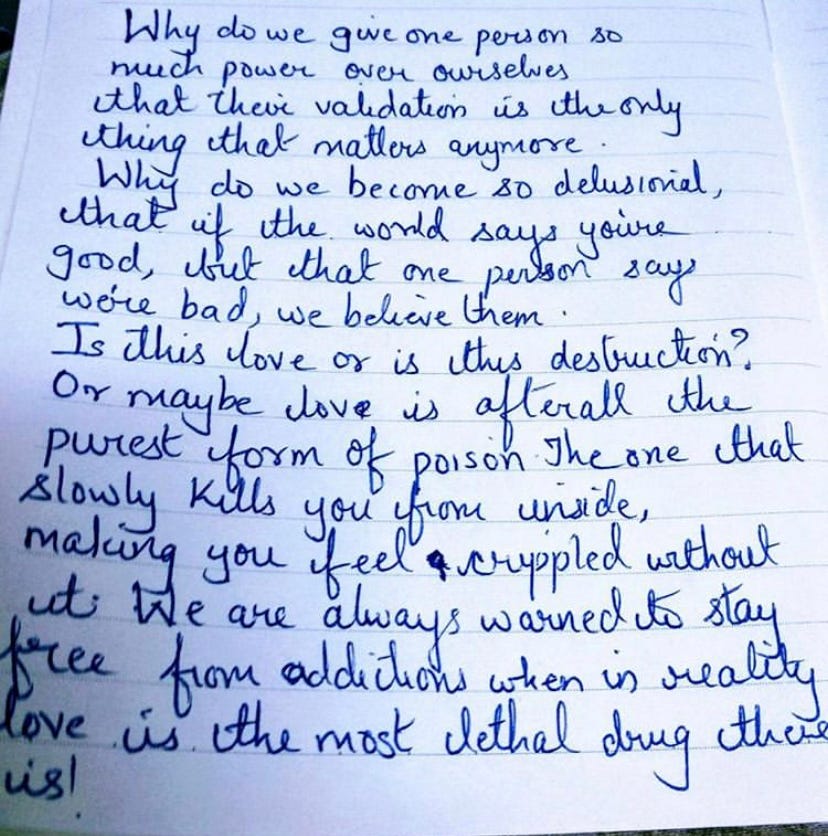 Why do we give one person so
much power over ourselves
that their validation is the only
thing that matters anymore.
Why do we become so delusional,
that if the world says you're
good, but that one person says
we're bad, we believe them.
Is this love or is this destruction?
Or maybe love is afterall the
purest form of poison. The one that
slowly kills you from inside,
making you feel crippled without
it. We are always warned to stay
free from addictions when in reality
love is the most lethal drug there
is!